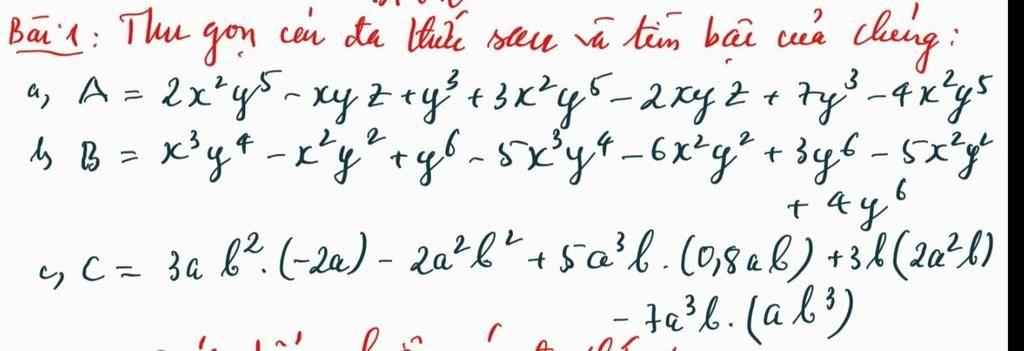 Bài 1: Thu gọn các đa thức sau và tìm bậc của chúng:
a, A = 2x²y⁵ - xyz + y³ + 3x²y⁵ - 2xyz + 7y³ - 4x²y⁵
b, B = x³y⁴ - x²y² + y⁶ - 5x³y⁴ - 6x²y² + 3y⁶ - 5x²y²
+ 4y⁶
c, C = 3ab².(-2a) - 2a²b² + 5a³b.(0,8ab) + 3b(2a²b)
- 7a³b.(ab³)